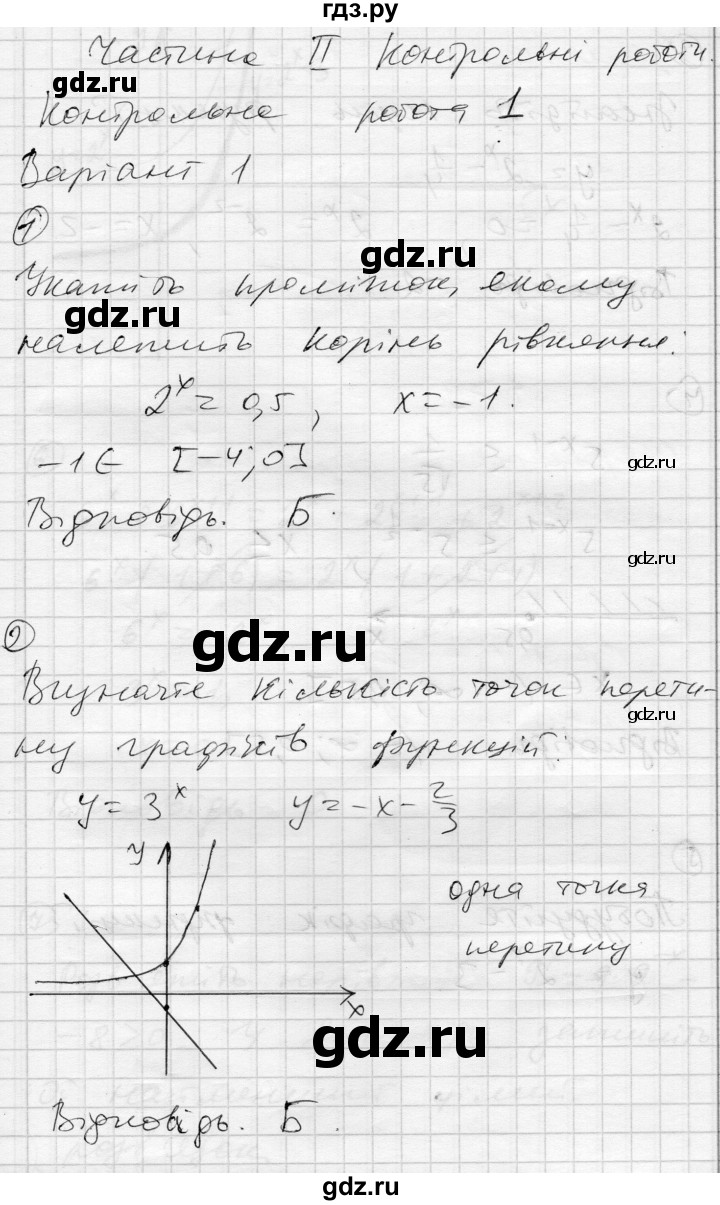 гдз.ру
Частина II Контрольні роботи.
Контрольна робота 1
Варіант 1
1
gdz.ru
Укажіть проміжок, якому
gdz.ru
належить корінь рівняння:
2^x = 0,5, x = -1.
-1 ∈ [-4; 0]
gdz.ru
Відповідь. Б.
gdz.ru
2
gdz.ru
Визначте кількість точок перети-
gdz.ru
ну графіків функцій:
y = 3^x y = -x - 2/3
y
одна точка
перетину
x
gdz.ru
Відповідь. Б.
gdz.ru